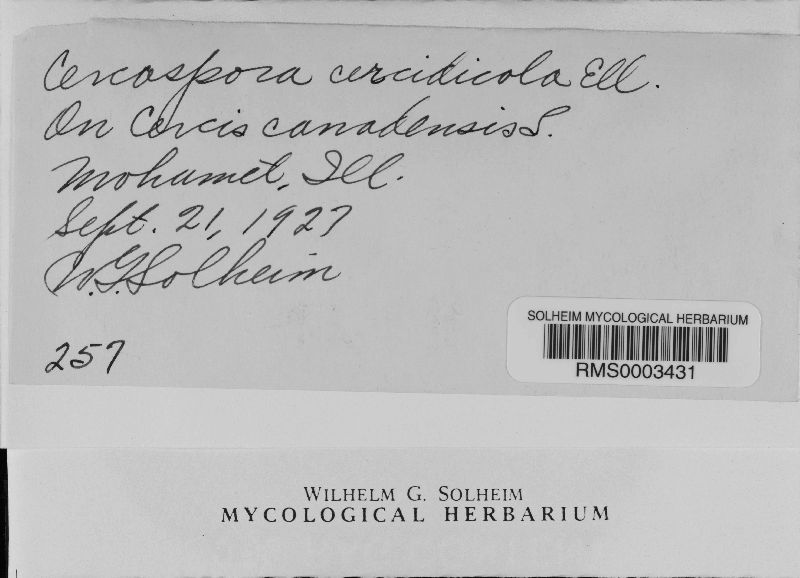 Cercospora cercidicola Ell.
On Cercis canadensis L.
Mohamet, Ill.
Sept. 21, 1927
W.G. Solheim
257
SOLHEIM MYCOLOGICAL HERBARIUM
RMS0003431
WILHELM G. SOLHEIM
MYCOLOGICAL HERBARIUM